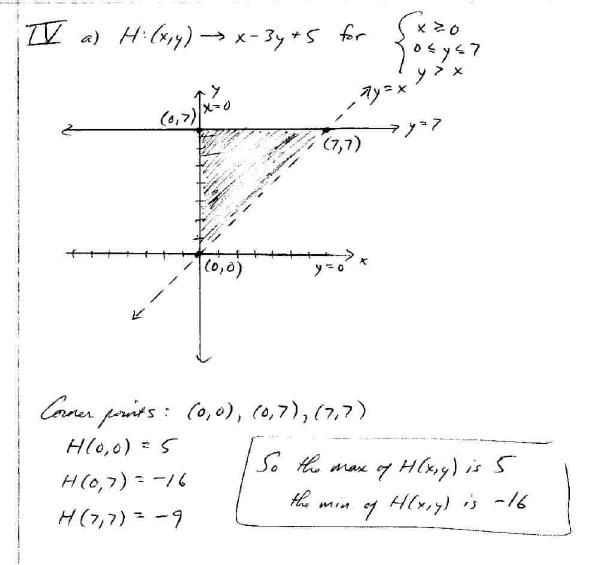 IV a) H:(x,y) → x-3y+5 for { x ≥ 0
0 ≤ y ≤ 7
y > x
y
x=0
y=x
(0,7)
y=7
(7,7)
(0,0)
y=0
x
Corner points: (0,0), (0,7), (7,7)
H(0,0) = 5
H(0,7) = -16
H(7,7) = -9
So the max of H(x,y) is 5
the min of H(x,y) is -16